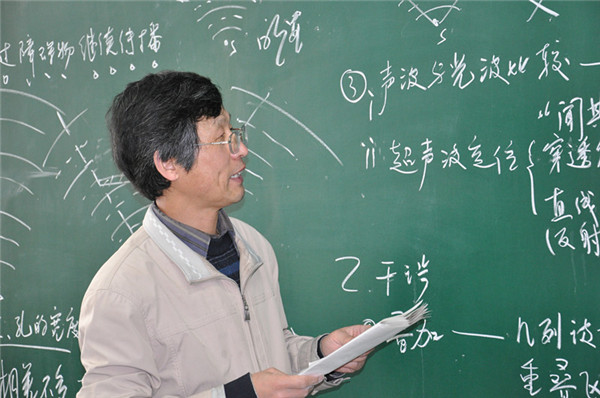 过障碍物继续传播
S
S
③ 声波与光波比较
i
"闻其
ii 超声波定位
穿透
直线
反射
乙.干涉
叠加 — 几列波
重叠区
孔的宽度
相差不